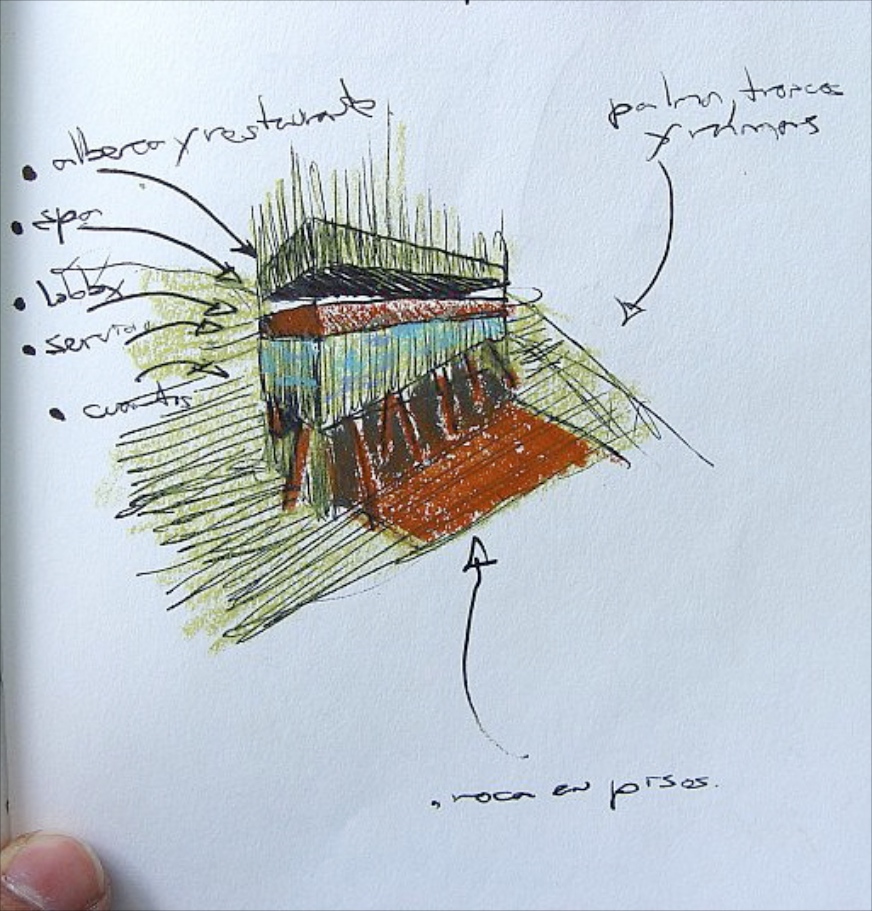 • alberca y restaurante
• spa
• lobby
• servicio
• cuartos
palma, troncos
y
. roca en pisos.